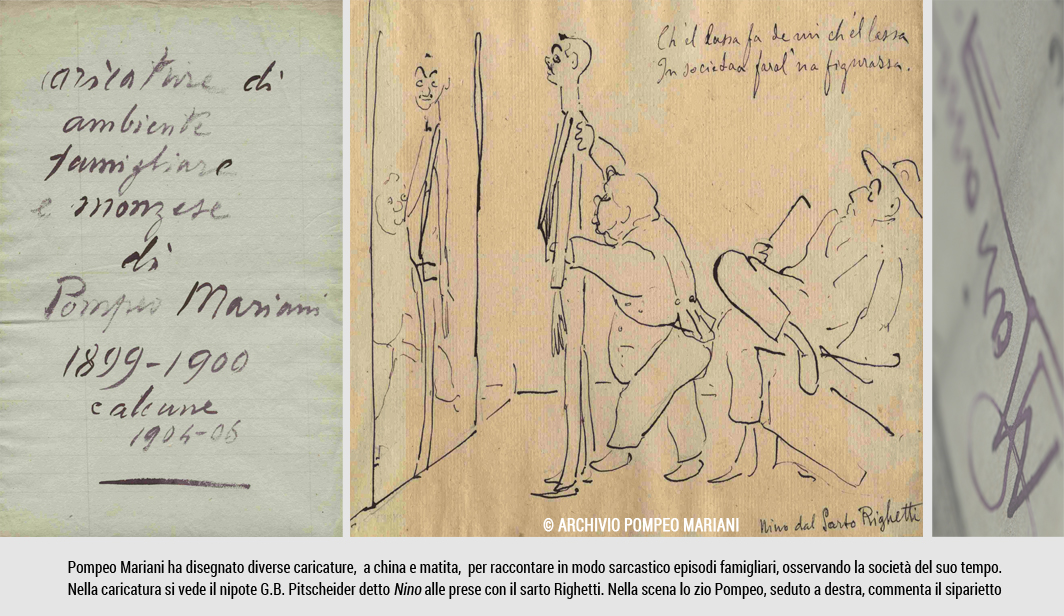 caricature di
ambiente
famigliare
e monzese
di
Pompeo Mariani
1899-1900
e alcune
1904-06
Ch'el lassa fa de mi ch'el lassa
In societaa faral na figurassa.
© ARCHIVIO POMPEO MARIANI
Nino dal Sarto Righetti
Pompeo Mariani ha disegnato diverse caricature, a china e matita, per raccontare in modo sarcastico episodi famigliari, osservando la società del suo tempo.
Nella caricatura si vede il nipote G.B. Pitscheider detto Nino alle prese con il sarto Righetti. Nella scena lo zio Pompeo, seduto a destra, commenta il siparietto